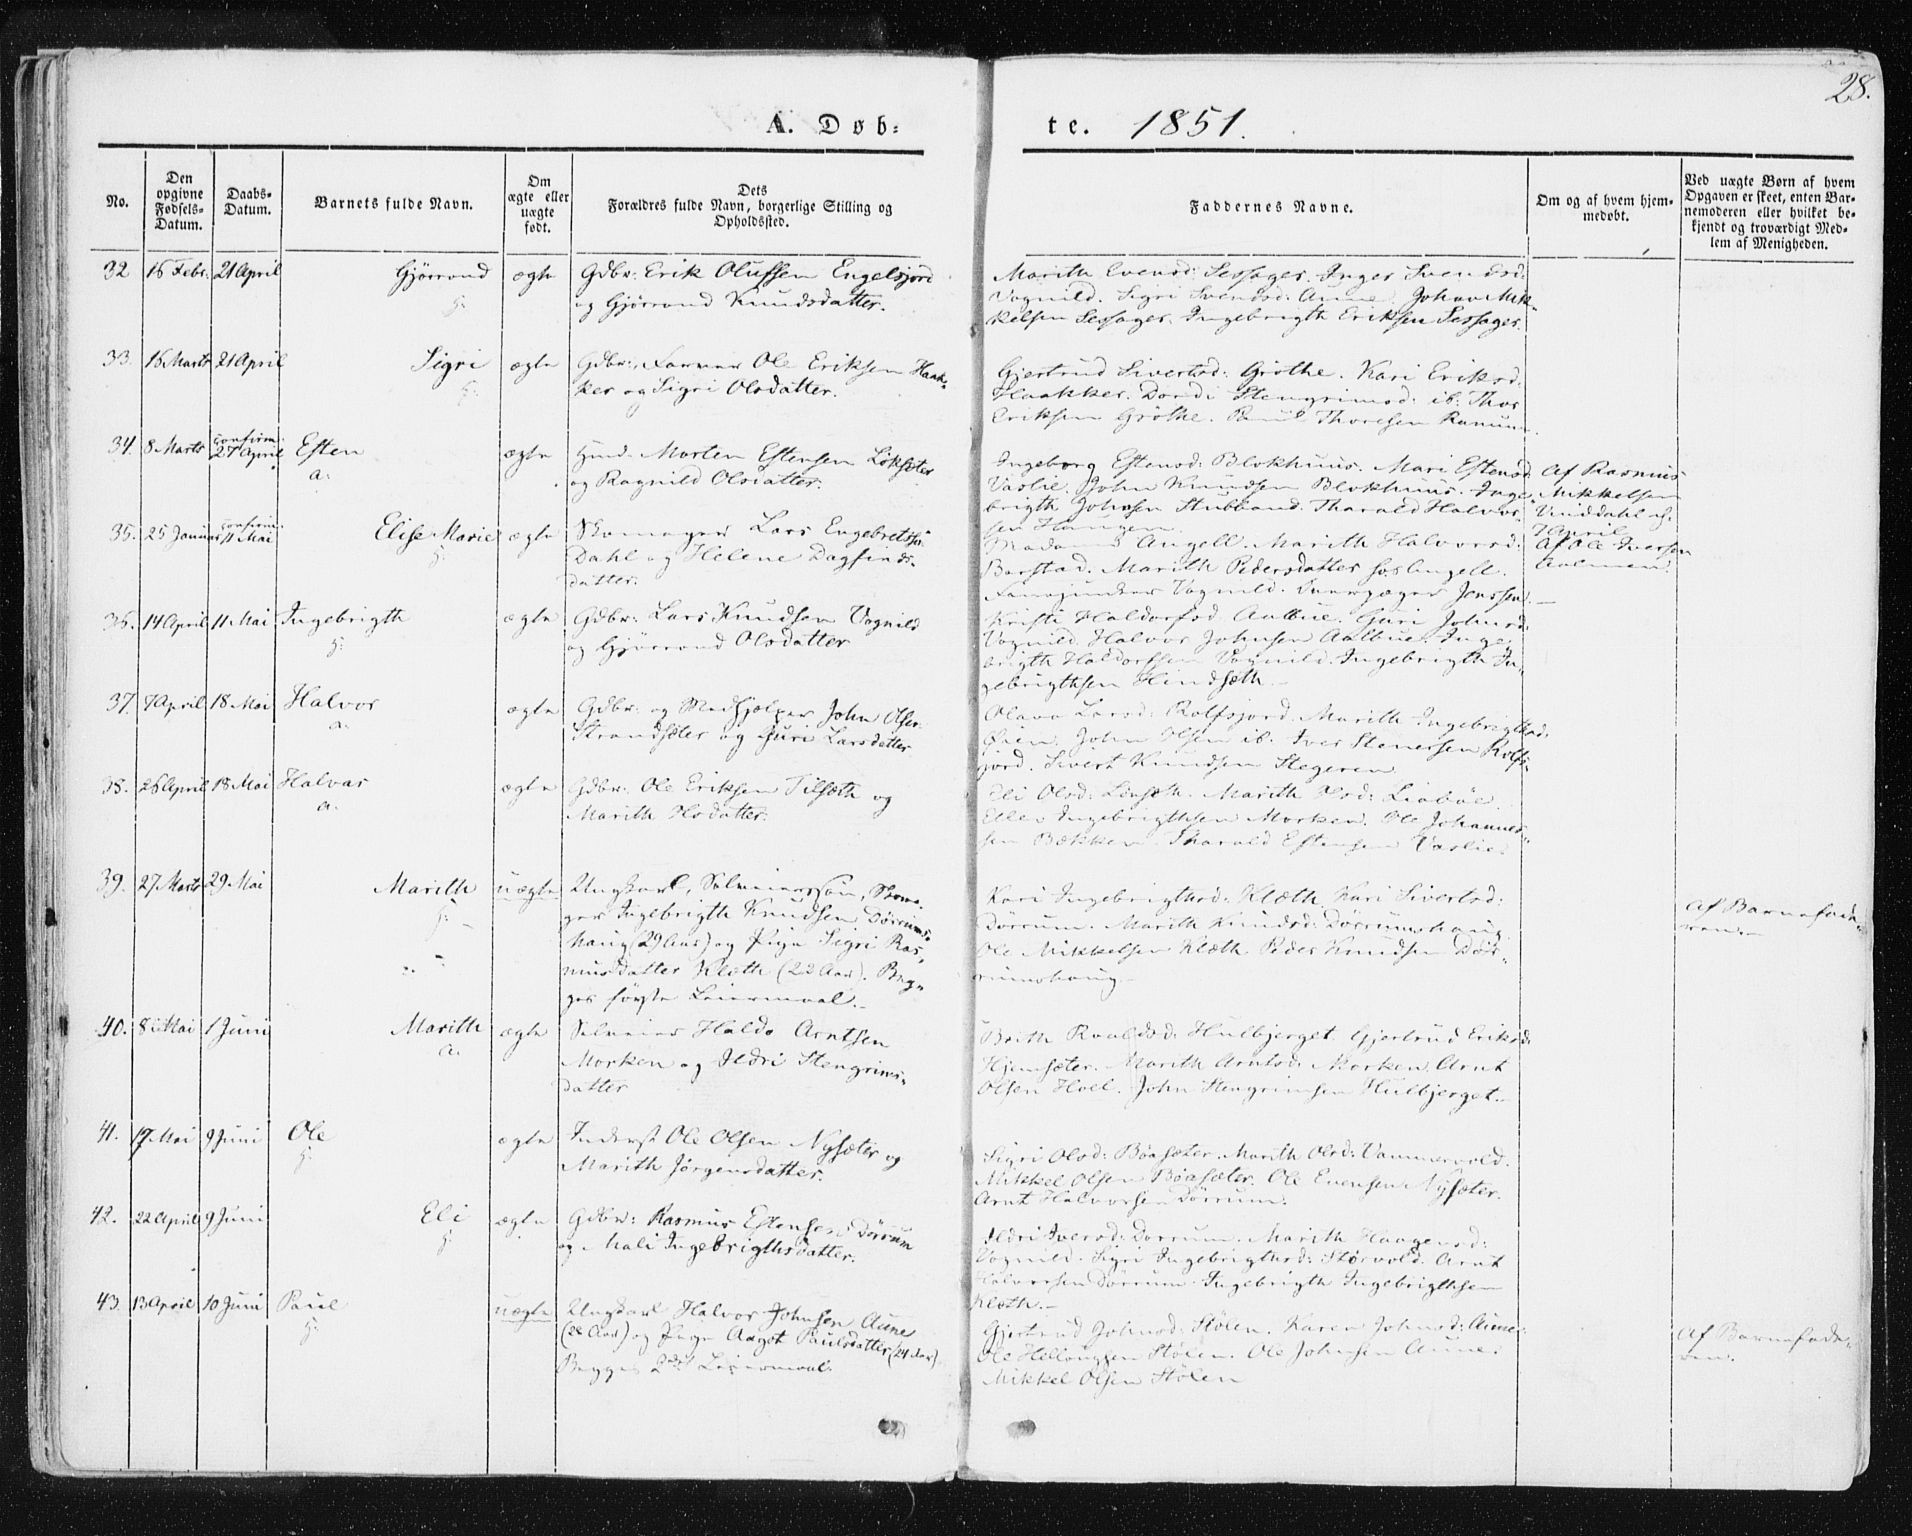 28.
A. Døb-
te. 1851.
No.
Den opgivne Fødsels-Datum.
Daabs-Datum.
Barnets fulde Navn.
Om ægte eller uægte født.
Dets Forældres fulde Navn, borgerlige Stilling og Opholdssted.
Faddernes Navne.
Om og af hvem hjemmedøbt.
Ved uægte Børn af hvem Opgaven er skeet, enten Barnemoderen eller hvilket bekjendt og troværdigt Medlem af Menigheden.
32 16 Febr. 21 April Gjørrond ægte Gdbr: Erik Olufsen Engelsjord
h: og Gjørrond Knudsdatter.
Marith Evensd: Sessager. Inger Svendsd:
Vognild. Sigri Svendsd: Aune. Johan Mik-
kelsen Sessager. Ingebrigth Eriksen Sessager.
33. 16 Marts 21 April Sigri ægte Gdbr:, Farver Ole Eriksen Haak-
h: ker og Sigri Olsdatter.
Gjertrud Sivertsd: Grøthe. Kari Eriksd:
Haakker. Dordi Stengrimsd: ib: Thor
Eriksen Grøthe. Thoresen
34. 8 Marts confirm: 27 April Esten ægte Huusd. Morten Estensen Løkseter
a: og Ragnild Olsdatter.
Ingeborg Estensd: Blokhuus. Mari Estensd
Vaslie. John Knudsen Blokhuus. Inge-
brigth Johnsen Stubband. Tharald Halvor-
sen Haugen.
Af Rasmus
Mikkelsen
Vinddahl
April
35. 25 Januar confirm: 11 Mai Elise Marie ægte Skomager Lars Engebretsen
h: Dahl og Helene Dagfinds-
datter.
Madame Angell. Marith Halvorsd:
Barstad. Marith Pedersdatter hos Angell.
Fanejunker Vognild. Jenssen.
Af Ole Iversen
Aalmen.
36. 14 April 11 Mai Ingebrigth ægte Gdbr: Lars Knudsen Vognild
h: og Gjørrond Olsdatter
Kristi Haldorsd Aalbue. Guri Johnsd:
Vognild. Halvor Johnsen Aalbue. Inge-
brigth Haldorssen Vognild. Ingebrigth In-
gebrigthsen Hindseth.
37. 7 April 18 Mai Halvor ægte Gdbr: og Medhjælper John Olsen
a: Strandseter og Guri Larsdatter
Olava Larsd: Rolfsjord. Marith Ingebrigthsd:
Øien. John Olsen ib. Iver Stenersen Rolfs-
jord. Sivert Knudsen Stegeren.
38. 26 April 18 Mai Halvar ægte Gdbr: Ole Eriksen Tilseth og
a: Marith Olsdatter.
Eli Olsd: Marith Olsd: Liabøe.
Ingebrigthsen Morken. Ole Johannes-
sen Bækken. Tharald Estensen Vaslie.
39. 27 Marts 29 Mai Marith uægte Ungkarl, Selveiersøn, Skoma-
h: ger Ingebrigth Knudsen Dørrums-
haug (29 Aar) og Pige Sigri Ras-
musdatter Klæth (22 Aar). Beg-
ges første Leiermaal.
Kari Ingebrigthsd: Klæth. Kari Sivertsd:
Dørrum. Marith Knudsd: Dørrumshaug
Ole Mikkelsen Klæth. Peder Knudsen Dør-
rumshaug.
Af Barnefade-
ren.
40. 8 Mai 1 Juni Marith ægte Selveier Haldo Arntsen
a. Morken og Ildri Stengrims-
datter
Brith Roaldsd: Hulbjerget. Gjertrud Eriksd:
Hjemseter. Marith Arntsd: Morken. Arnt
Olsen Hoel. John Stengrimsen Hulbjerget.
41. 17 Mai 9 Juni Ole ægte Inderst Ole Olsen Nyseter og
h: Marith Jørgensdatter.
Sigri Olsd: Bøaseter. Marith Olsd: Vammervold.
Mikkel Olsen Bøaseter. Ole Evensen Nyseter.
Arnt Halvorsen Dørrum.
42. 22 April 9 Juni Eli ægte Gdbr: Rasmus Estensen Dørrum
h: og Mali Ingebrigthsdatter.
Ildri Iversd: Dørrum. Marith Haagensd:
Vognild. Sigri Ingebrigthsd: Størvold. Arnt
Halvorsen Dørrum. Ingebrigth Ingebrigthsen
Klæth.
43. 13 April 10 Juni Paul uægte Ungkarl Halvor Johnsen Aune
h: (28 Aar) og Pige Aagot Paulsdatter (24 Aar)
Begges 2det Leiermaal.
Gjertrud Johnsd: Stølen. Karen Johnsd: Aune.
Ole Stølen. Ole Johnsen Aune.
Mikkel Olsen Stølen
Af Barnefade-
ren.